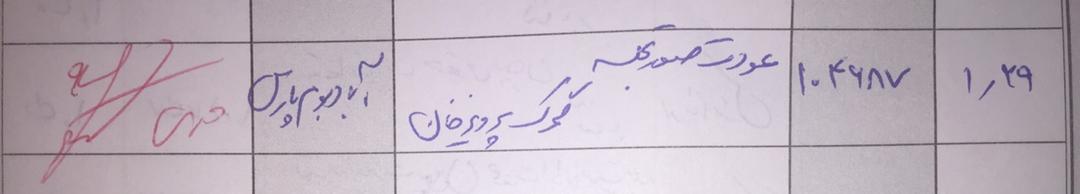 ۱٫۲۹
۱۰۴۶۸۷
عودت صورتجلسه
گمرک پرویزخان
آبادبوم پارس